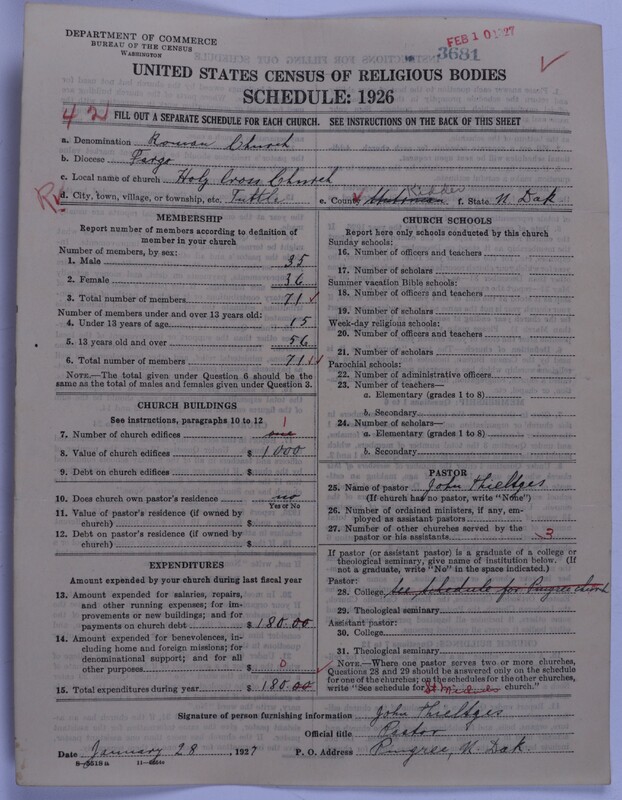 DEPARTMENT OF COMMERCE
BUREAU OF THE CENSUS
WASHINGTON
FEB 10 1927
3681
UNITED STATES CENSUS OF RELIGIOUS BODIES
SCHEDULE: 1926
42
FILL OUT A SEPARATE SCHEDULE FOR EACH CHURCH. SEE INSTRUCTIONS ON THE BACK OF THIS SHEET
a. Denomination Roman Church
b. Diocese Fargo
c. Local name of church Holy Cross Church
d. City, town, village, or township, etc. Tuttle e. County Kidder f. State N Dak
MEMBERSHIP
Report number of members according to definition of member in your church
Number of members, by sex:
1. Male 35
2. Female 36
3. Total number of members 71
Number of members under and over 13 years old:
4. Under 13 years of age 15
5. 13 years old and over 56
6. Total number of members 71
NOTE.—The total given under Question 6 should be the same as the total of males and females given under Question 3.
CHURCH BUILDINGS
See instructions, paragraphs 10 to 12
7. Number of church edifices one 1
8. Value of church edifices $ 1000
9. Debt on church edifices $
10. Does church own pastor's residence no
Yes or No
11. Value of pastor's residence (if owned by church) $
12. Debt on pastor's residence (if owned by church) $
EXPENDITURES
Amount expended by your church during last fiscal year
13. Amount expended for salaries, repairs, and other running expenses; for improvements or new buildings; and for payments on church debt $ 180.00
14. Amount expended for benevolences, including home and foreign missions; for denominational support; and for all other purposes $ 0
15. Total expenditures during year $ 180.00
CHURCH SCHOOLS
Report here only schools conducted by this church
Sunday schools:
16. Number of officers and teachers
17. Number of scholars
Summer vacation Bible schools:
18. Number of officers and teachers
19. Number of scholars
Week-day religious schools:
20. Number of officers and teachers
21. Number of scholars
Parochial schools:
22. Number of administrative officers
23. Number of teachers—
a. Elementary (grades 1 to 8)
b. Secondary
24. Number of scholars—
a. Elementary (grades 1 to 8)
b. Secondary
PASTOR
25. Name of pastor John Thieltges
(If church has no pastor, write "None")
26. Number of ordained ministers, if any, employed as assistant pastors
27. Number of other churches served by the pastor or his assistants 3
If pastor (or assistant pastor) is a graduate of a college or theological seminary, give name of institution below. (If not a graduate, write "No" in the space indicated.)
Pastor:
28. College See schedule for Pingree Church
29. Theological seminary
Assistant pastor:
30. College
31. Theological seminary
NOTE.—Where one pastor serves two or more churches, Questions 28 and 29 should be answered only on the schedule for one of the churches; on the schedules for the other churches, write "See schedule for St church."
Signature of person furnishing information John Thieltges
Official title Pastor
Date January 28, 1927 P. O. Address Pingree, N. Dak.